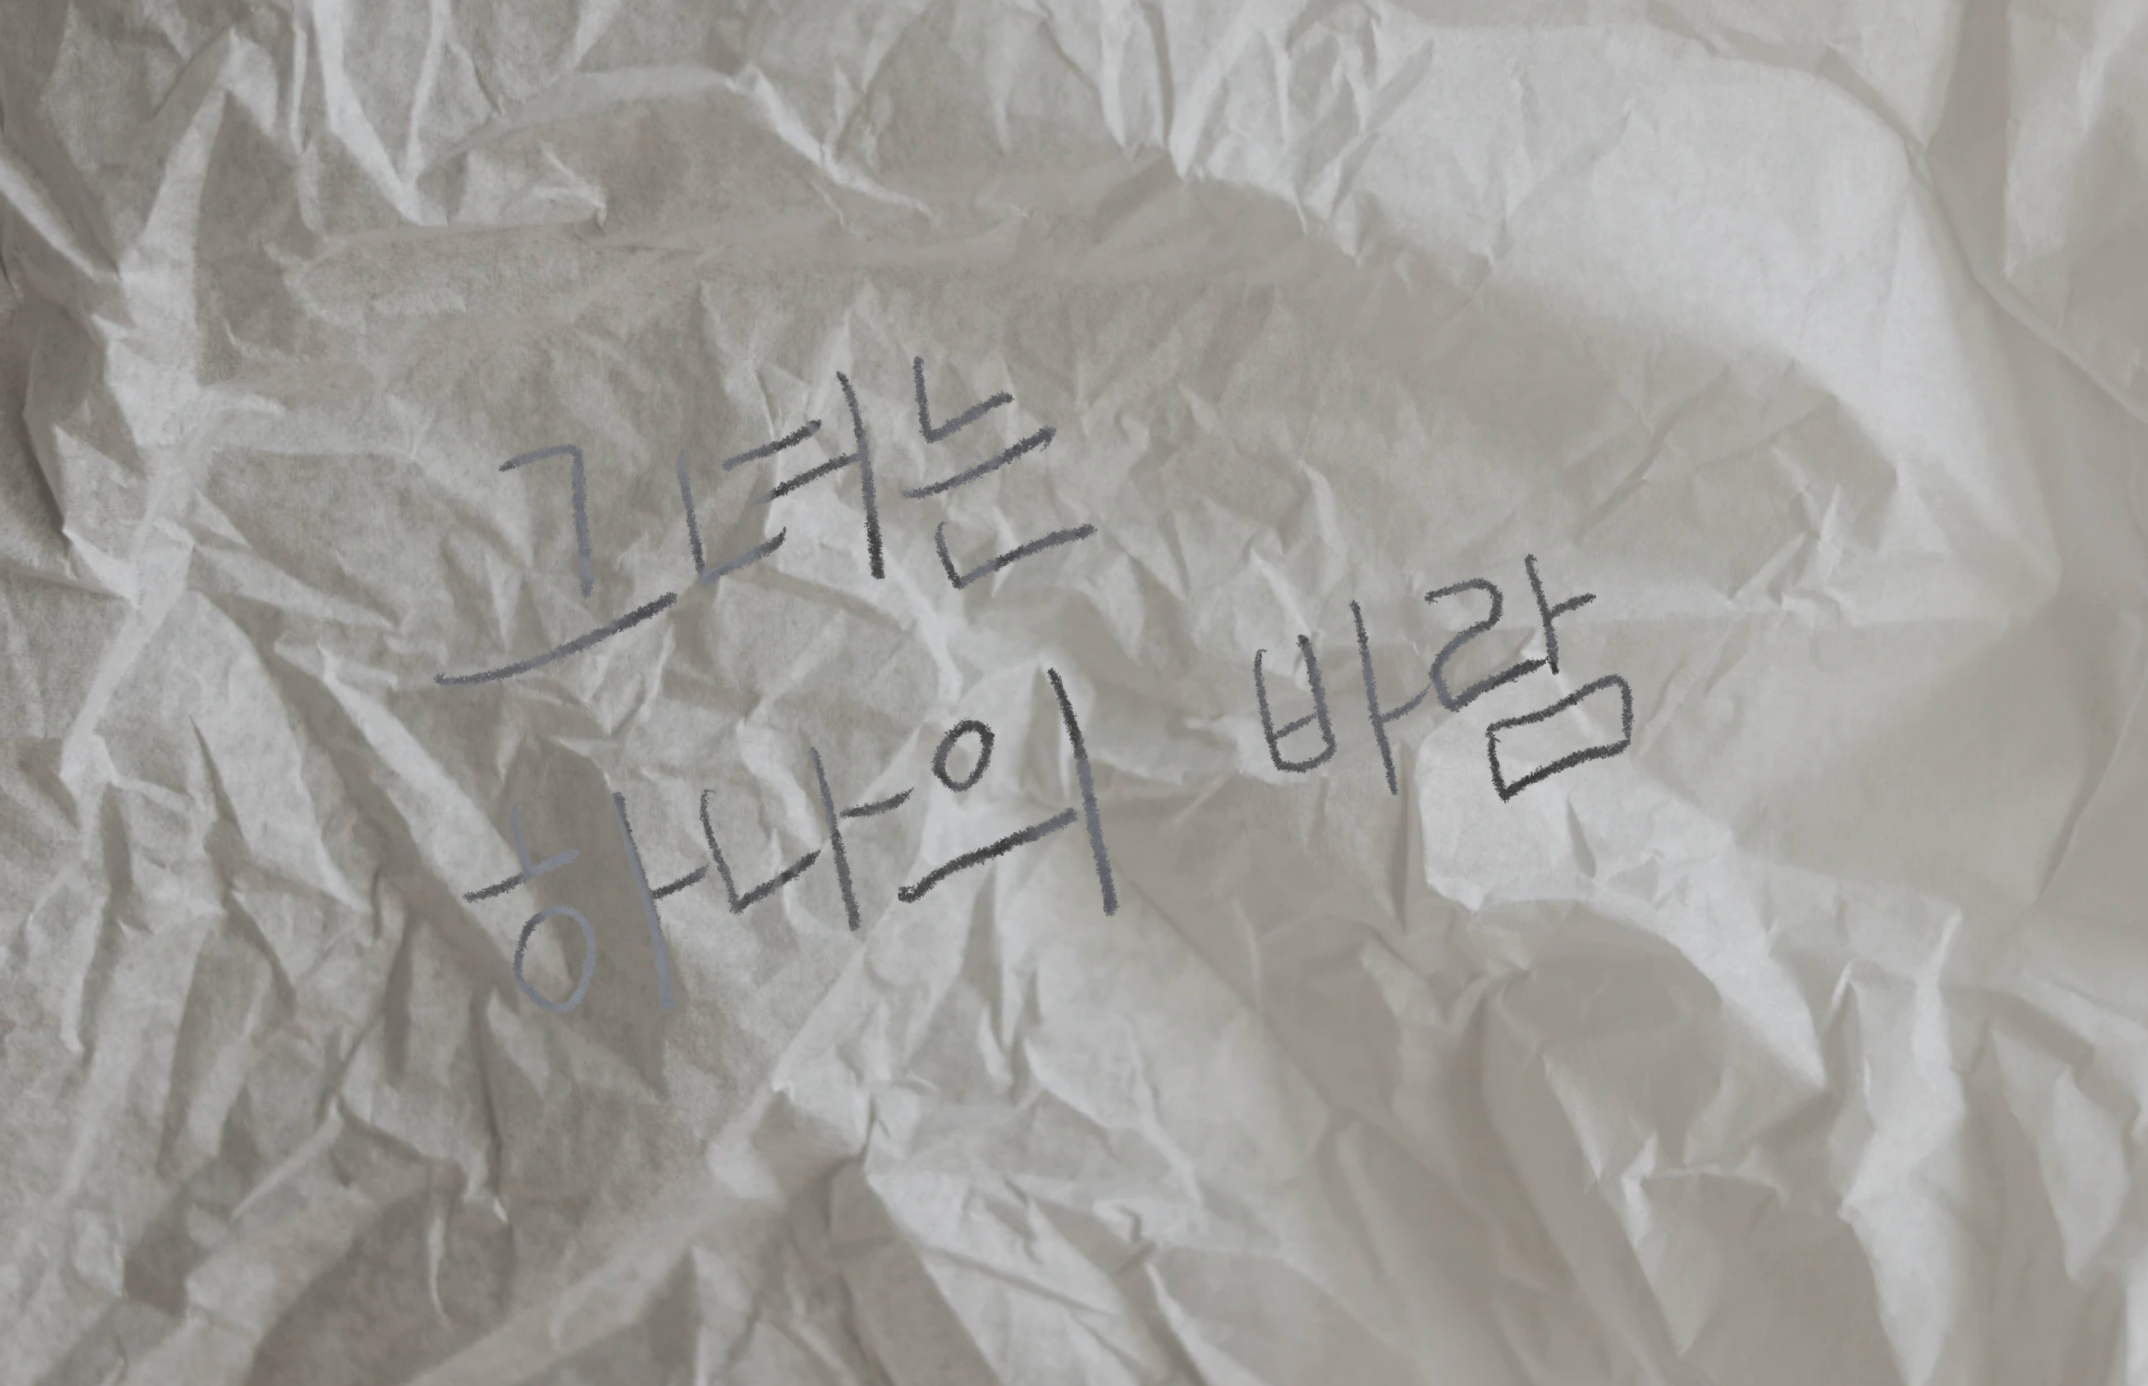 그녀는
하나의 바람